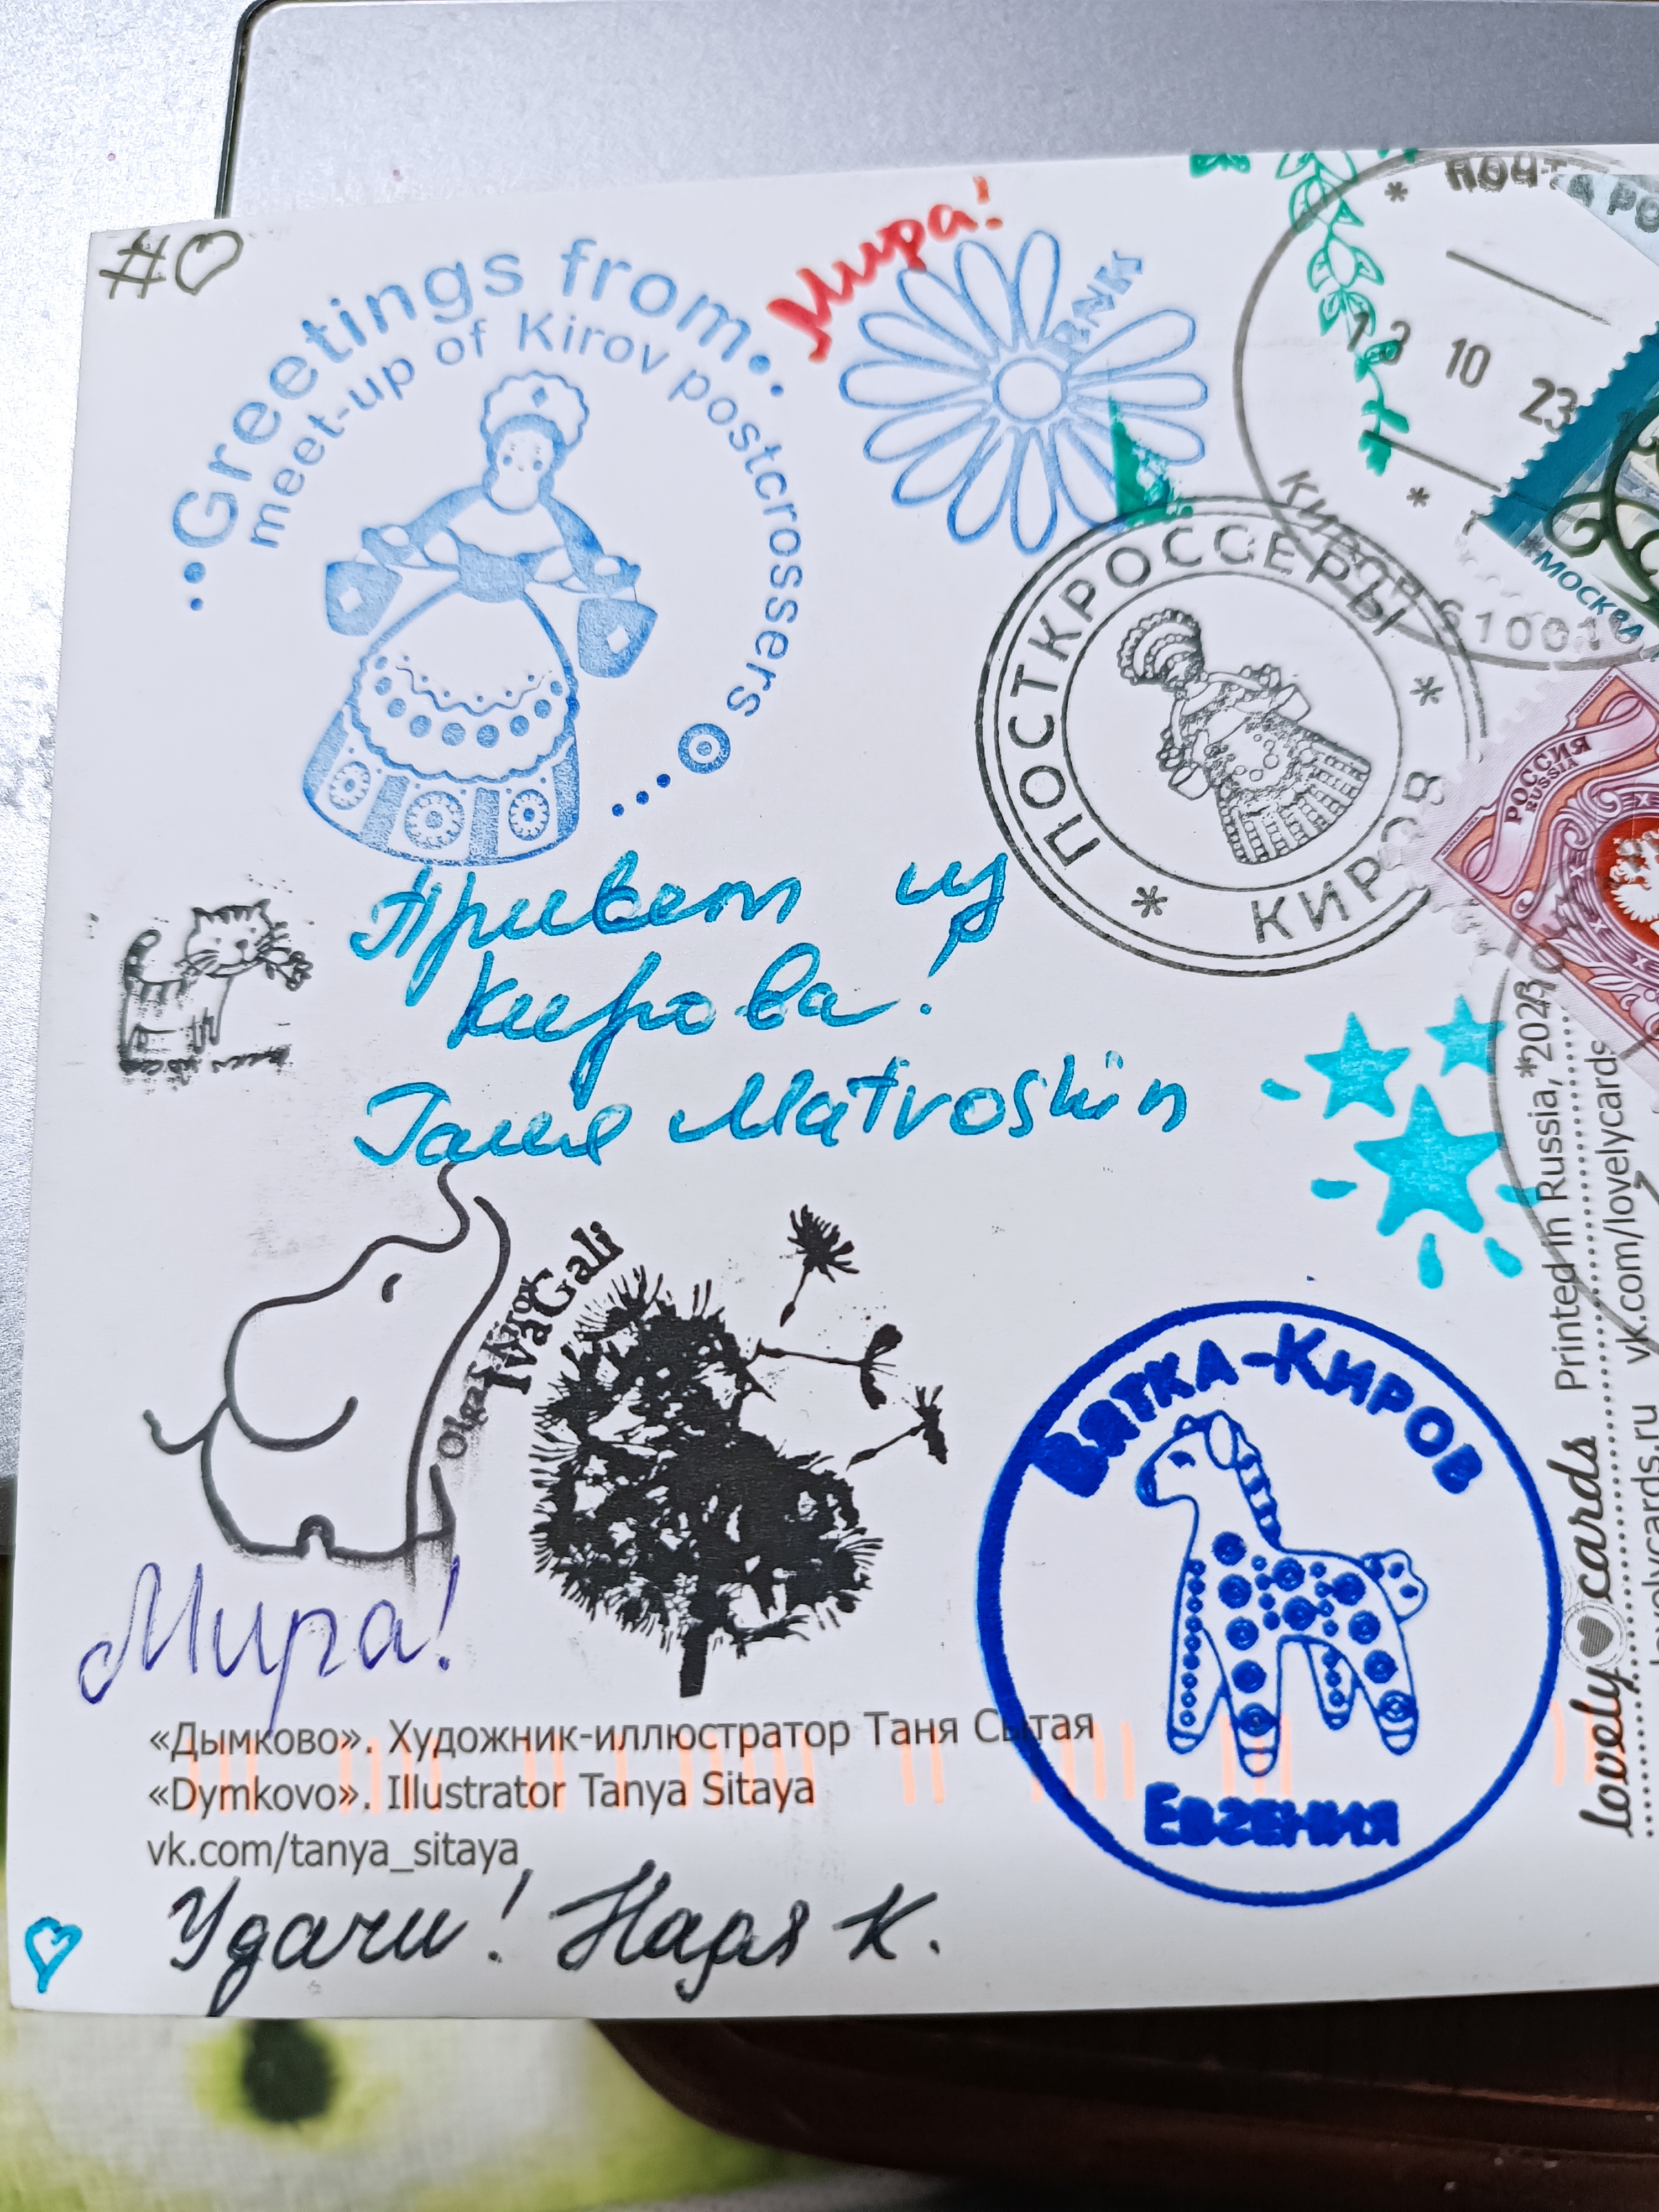 #
Greetings from
meet-up of Kirov postcrossers
Мира!
BNK
ПОЧТА РО
13 10 23
КИРОВ 61001
МОСКВА
РОССИЯ
RUSSIA
ПОСТКРОССЕРЫ
КИРОВ
Привет из
Кирова!
Галя Matroshin
IvaGali
Olga
ВЯТКА-КИРОВ
ЕВГЕНИЯ
Мира!
«Дымково». Художник-иллюстратор Таня Сытая
«Dymkovo». Illustrator Tanya Sitaya
vk.com/tanya_sitaya
Удачи! Надя К.
lovely cards
Printed in Russia, 2023
vk.com/lovelycards
lovelycards.ru